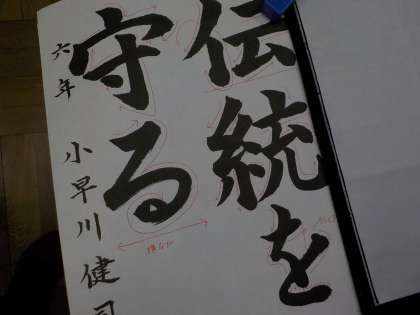 伝統を
守る
六年 小早川健司